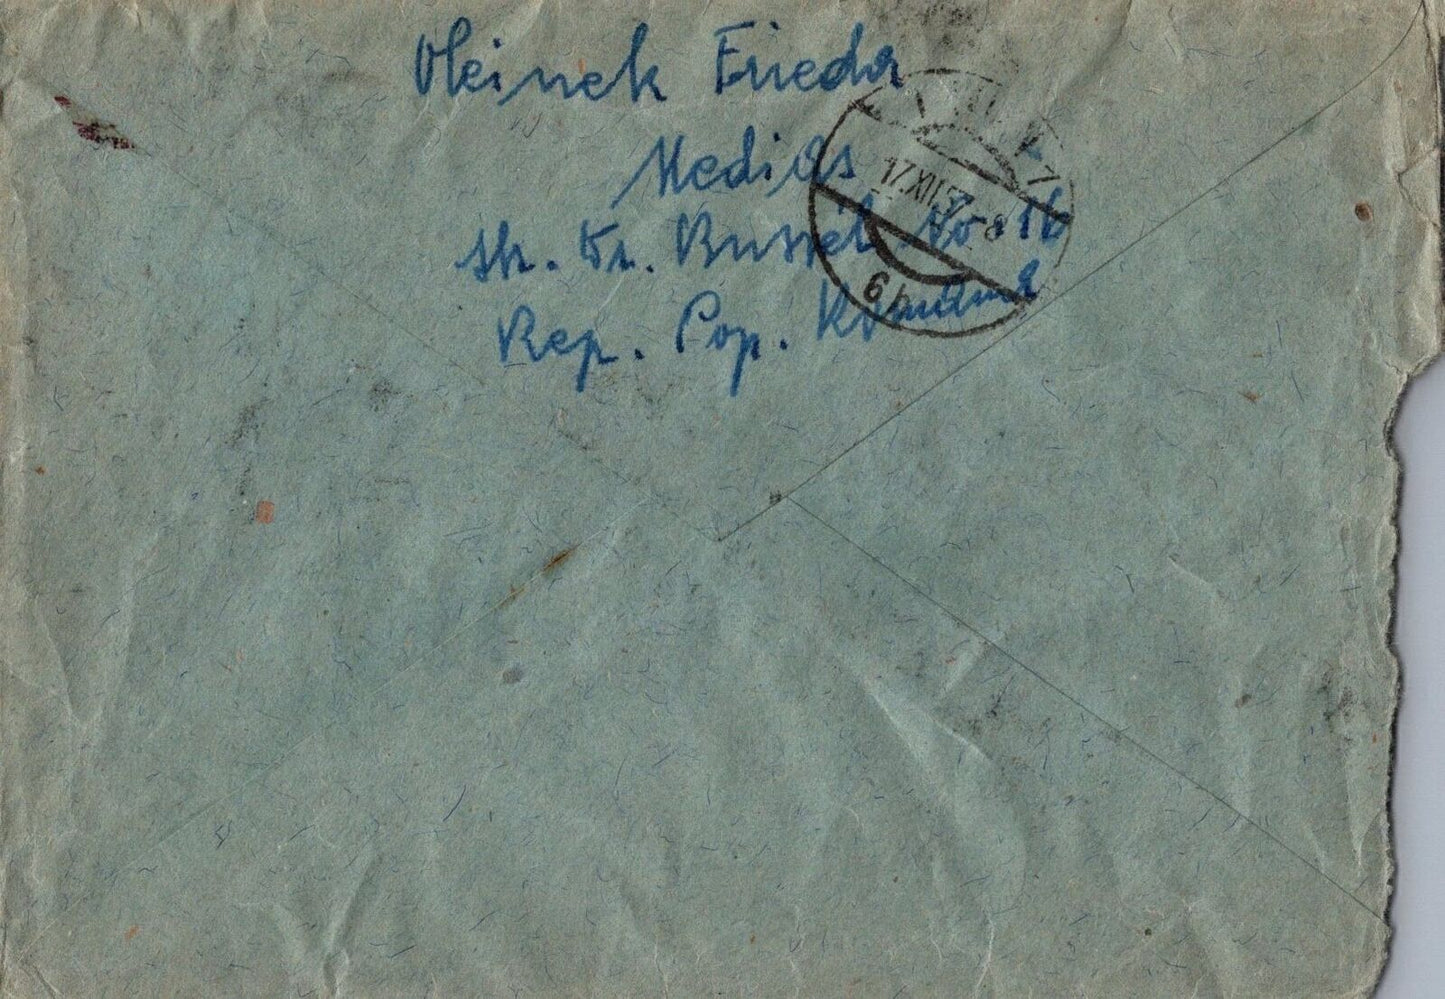 Oleinek Frieda
Medias
str. Dr. Russel No. 16
Rep. Pop. Romina
17.XII.57-8
6